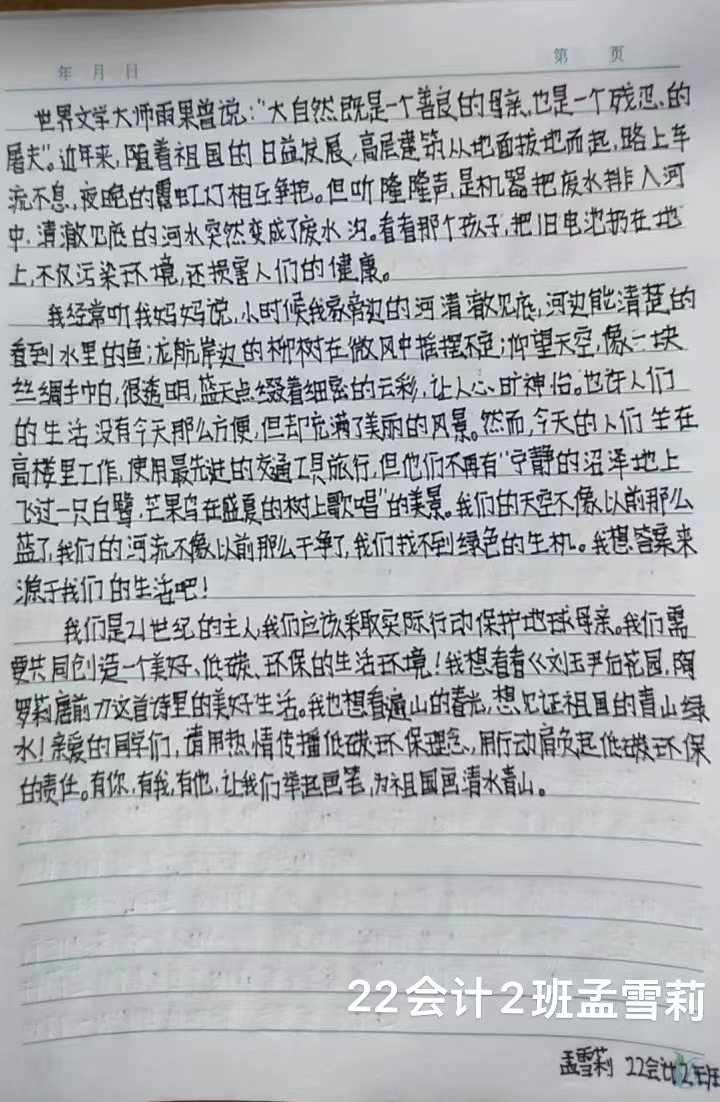 年 月 日
第 页
世界文学大师雨果曾说:"大自然既是一个善良的母亲,也是一个残忍的
屠夫"。近年来,随着祖国的日益发展,高层建筑从地面拔地而起,路上车
流不息,夜晚的霓虹灯相互争艳。但听隆隆声,是机器把废水排入河
中,清澈见底的河水突然变成了废水沟。看看那个孩子,把旧电池扔在地
上,不仅污染环境,还损害人们的健康。
我经常听我妈妈说,小时候我家旁边的河清澈见底,河边能清楚的
看到水里的鱼;岸边的柳树在微风中摇摆不定;仰望天空,像一块
丝绸手帕,很透明,蓝天点缀着细密的云彩,让人心旷神怡。也许人们
的生活没有今天那么方便,但却充满了美丽的风景。然而,今天的人们坐在
高楼里工作,使用最先进的交通工具旅行,但他们不再有"宁静的沼泽地上
飞过一只白鹭,芒果鸟在盛夏的树上歌唱"的美景。我们的天空不像以前那么
蓝了,我们的河流不像以前那么干净了,我们找不到绿色的生机。我想答案来
源于我们的生活吧!
我们是21世纪的主人,我们应该采取实际行动保护地球母亲。我们需
要共同创造一个美好、低碳、环保的生活环境!我想看看《刘玉尹后花园,陶
罗莉唐前力这首诗里的美好生活。我也想看遍山的春光,想见证祖国的青山绿
水!亲爱的同学们,请用热情传播低碳环保理念,用行动肩负起低碳环保
的责任。有你,有我,有他,让我们举起画笔,为祖国画清水青山。
22会计2班孟雪莉
孟雪莉 22会计2班